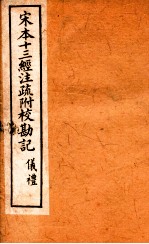 宋本十三經注疏附校勘記
儀禮